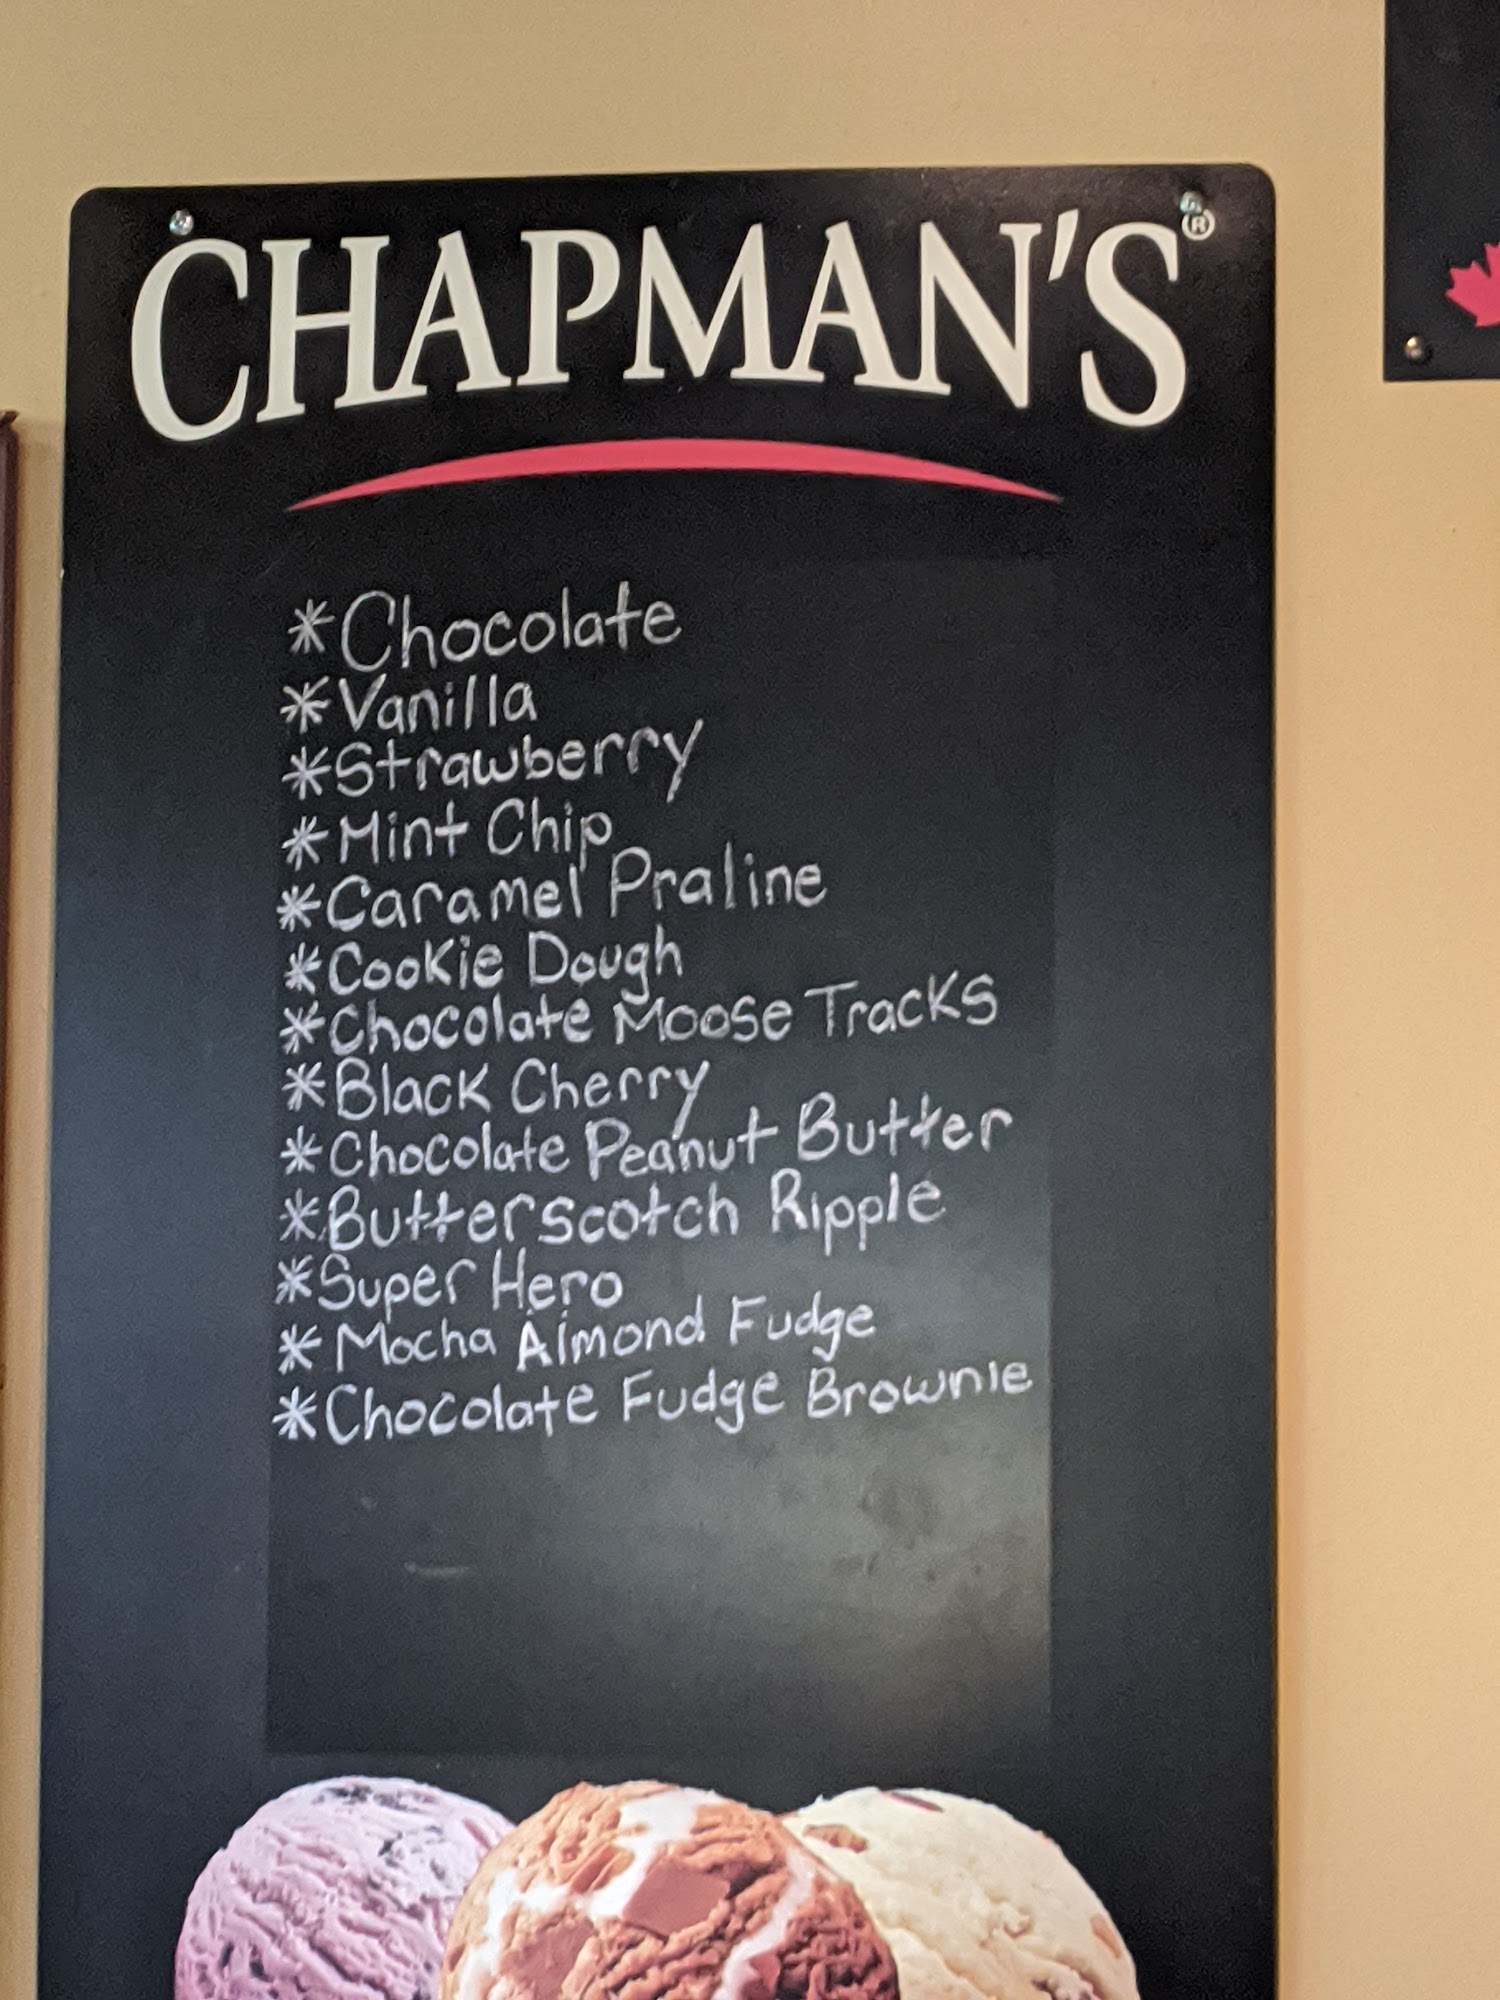 CHAPMAN'S®
*Chocolate
*Vanilla
*Strawberry
*Mint Chip
*Caramel Praline
*Cookie Dough
*Chocolate Moose Tracks
*Black Cherry
*Chocolate Peanut Butter
*Butterscotch Ripple
*Super Hero
*Mocha Almond Fudge
*Chocolate Fudge Brownie